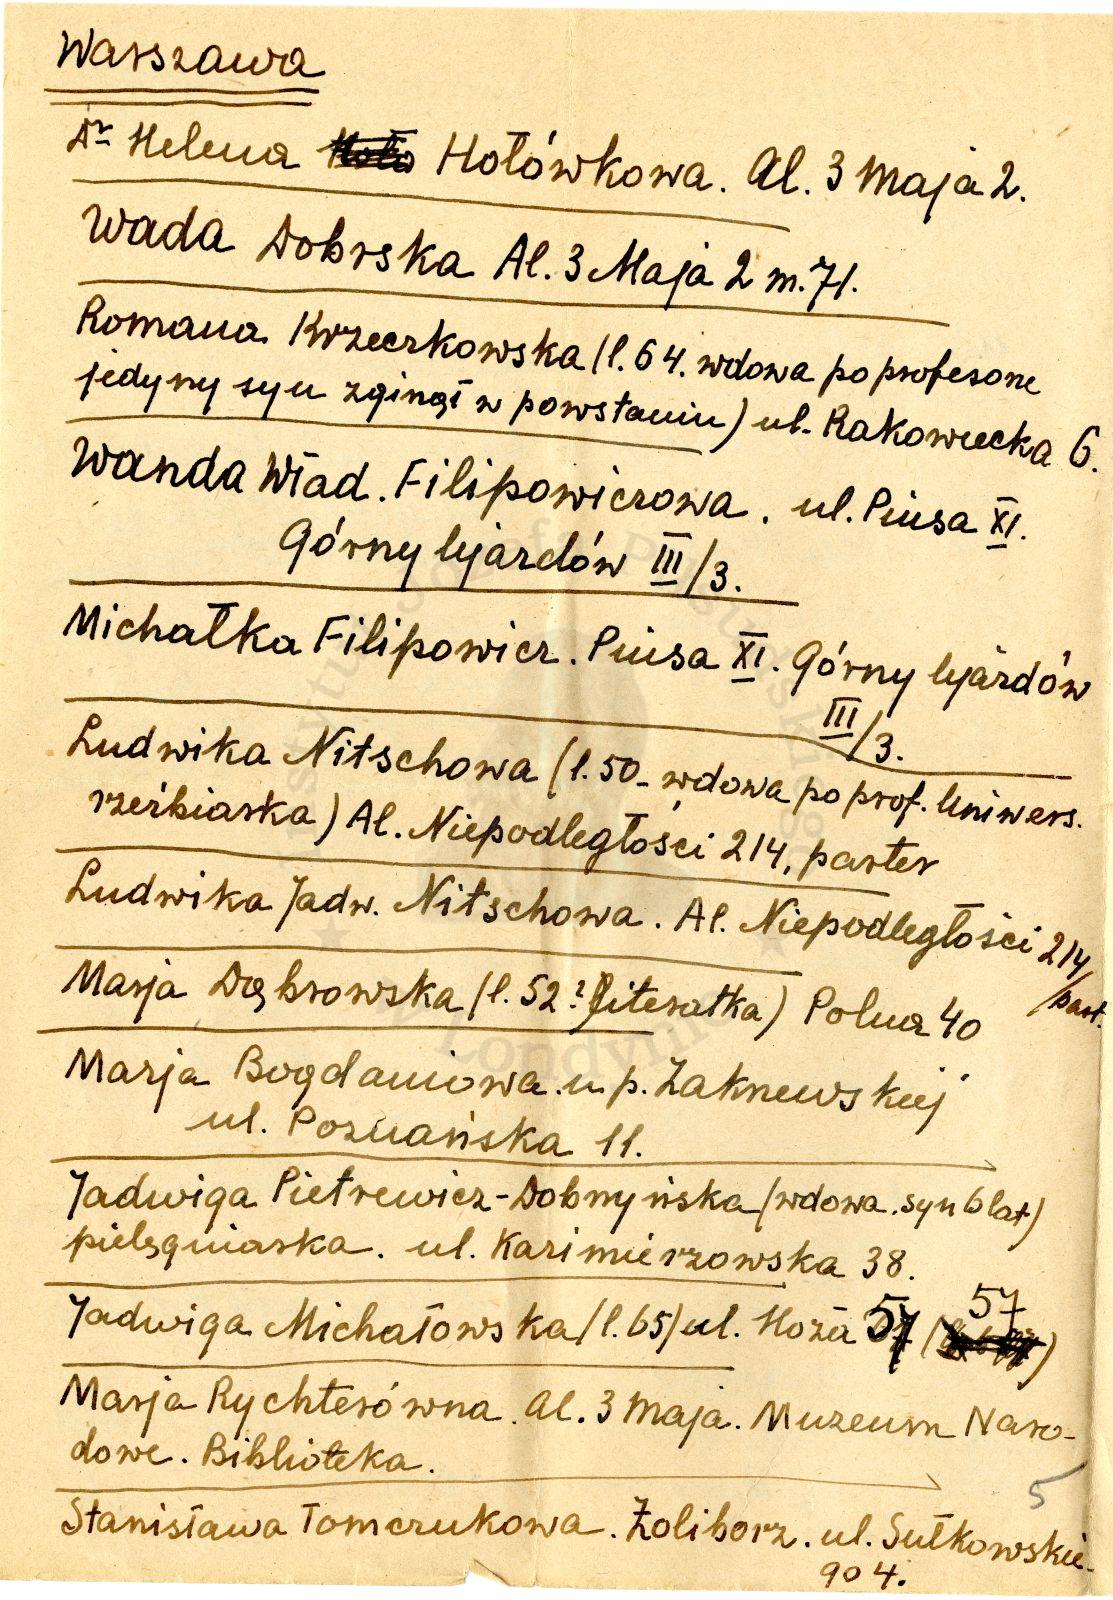 Warszawa
Dr Helena Hołówkowa. Al. 3 Maja 2.
Wada Dobrska Al. 3 Maja 2 m. 71.
Romana Krzeczkowska (l. 64. wdowa po profesorze
jedyny syn zginął w powstaniu) ul. Rakowiecka 6.
Wanda Wład. Filipowiczowa. ul. Piusa XI.
Górny Ujazdów III/3.
Michałka Filipowicz. Piusa XI. Górny Ujazdów
III/3.
Ludwika Nitschowa (l. 50 - wdowa po prof. Uniwers.
rzeźbiarka) Al. Niepodległości 214, parter
Ludwika Jadw. Nitschowa. Al. Niepodległości 214/
part.
Marja Dąbrowska (l. 52? literatka) Polna 40
Marja Bogdaniowa u p.
ul. Poznańska 11.
Jadwiga Pietrewicz-Dobrzyńska (wdowa. syn 6 lat)
pielęgniarka. ul. Kazimierzowska 38.
Jadwiga Michałowska (l. 65) ul. Hoża 57 (57)
Marja Rychterówna. Al. 3 Maja. Muzeum Naro-
dowe. Biblioteka.
5
Stanisława Tomczukowa. Żoliborz. ul. Sułkowskie-
go 4.